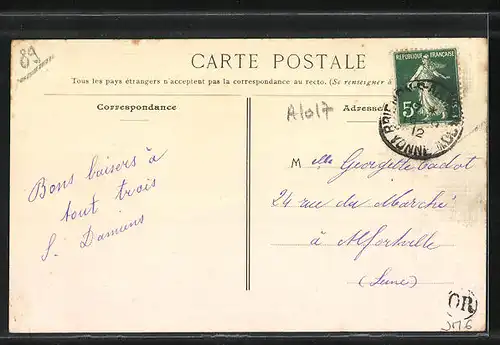 89
CARTE POSTALE
Tous les pays étrangers n'acceptent pas la correspondance au recto. (Se renseigner à
Correspondance
A1017
Adresse
REPUBLIQUE FRANÇAISE
5c
12
YONNE
Bons baisers à
tout trois
S. Damiens
Mlle Georgette Cadot
24 rue du Marché
à Alfortville
(Seine)
OR